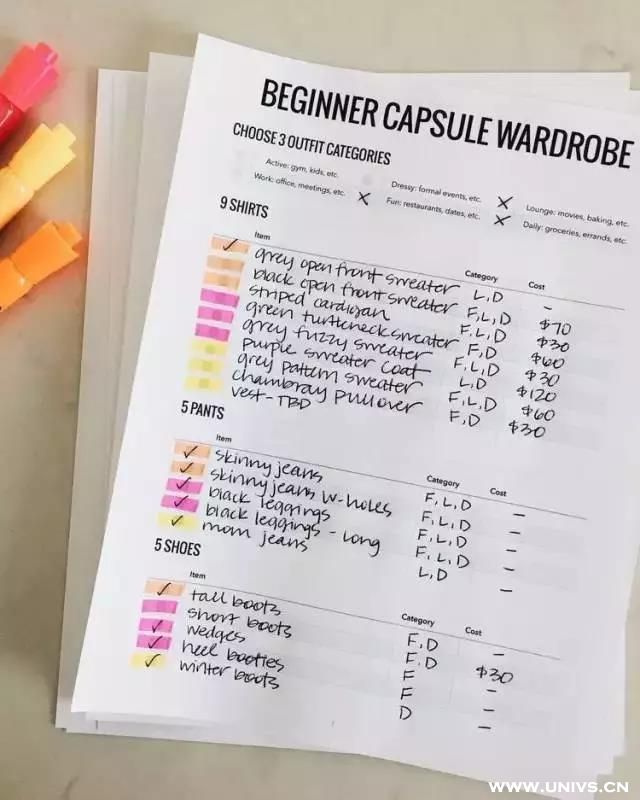 BEGINNER CAPSULE WARDROBE
CHOOSE 3 OUTFIT CATEGORIES
Active: gym, kids, etc. Dressy: formal events, etc. X Lounge: movies, baking, etc.
Work: office, meetings, etc. X Fun: restaurants, dates, etc. X Daily: groceries, errands, etc.
9 SHIRTS
Item Category Cost
✓ grey open front sweater L, D –
black open front sweater F, L, D $70
striped cardigan F, L, D $30
green turtleneck sweater F, D $60
grey fuzzy sweater F, L, D $30
purple sweater coat L, D $120
grey pattern sweater F, L, D $60
chambray pullover F, D $30
vest - TBD
5 PANTS
Item Category Cost
✓ skinny jeans F, L, D –
✓ skinny jeans w-holes F, L, D –
✓ black leggings F, L, D –
✓ black leggings - long F, L, D –
✓ mom jeans L, D –
5 SHOES
Item Category Cost
✓ tall boots F, D –
short boots F, D $30
✓ wedges F –
✓ heel booties F –
✓ winter boots D –
WWW.UNIVS.CN